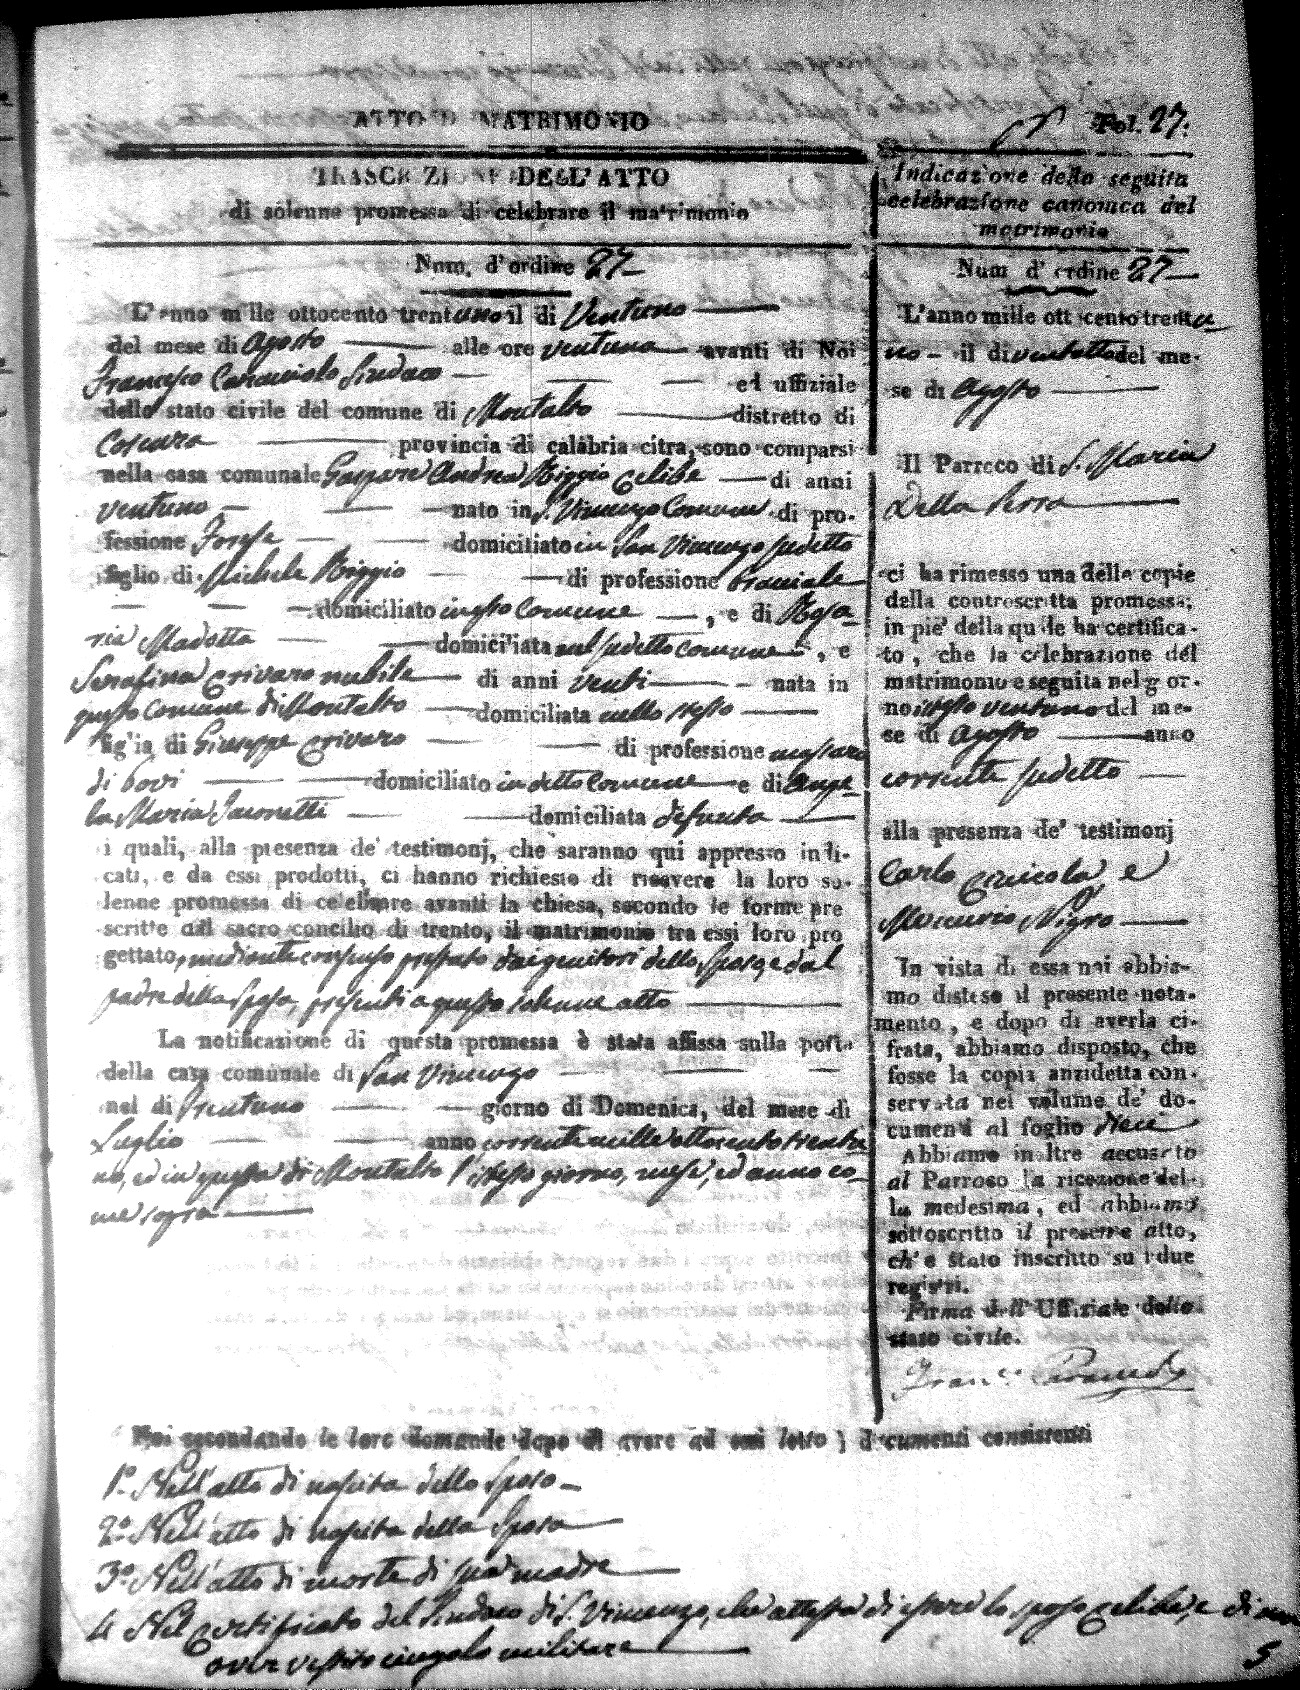 ATTO DI MATRIMONIO
Fol. 27.
TRASCRIZIONE DELL'ATTO
di solenne promessa di celebrare il matrimonio
Num. d'ordine 27
L'anno mille ottocento trentuno il di Ventuno
del mese di Agosto alle ore ventuna avanti di Noi
Francesco Sindaco ed uffiziale
dello stato civile del comune di Montalto distretto di
Cosenza provincia di calabria citra, sono comparsi
nella casa comunale Gaspare Andrea Riggio Celibe di anni
ventuno nato in S. Vincenzo Comune di pro-
fessione domiciliato in San Vincenzo sudetto
figlio di Michele Riggio di professione bracciale
domiciliato in esso Comune, e di Rosa-
ria domiciliata nel sudetto comune, e
Serafina Crivaro nubile di anni venti nata in
questo Comune di Montalto domiciliata nello stesso
figlia di Giuseppe Crivaro di professione
di bovi domiciliato in detto Comune e di Ange-
la Maria Iaconetti domiciliata defunta
i quali, alla presenza de' testimonj, che saranno qui appresso indi-
cati, e da essi prodotti, ci hanno richiesto di ricevere la loro so-
lenne promessa di celebrare avanti la chiesa, secondo le forme pre
scritte dal sacro concilio di trento, il matrimonio tra essi loro pro
gettato, mediante consenso prestato dai genitori dello Sposo, e dal
padre della Sposa, presenti a questo solenne atto
La notificazione di questa promessa è stata affissa sulla porta
della casa comunale di San Vincenzo
nel di trentuno giorno di Domenica, del mese di
Luglio anno corrente mille ottocento trentu
no, ed in questa di Montalto l'istesso giorno, mese, ed anno co-
me sopra
Indicazione della seguita
celebrazione canonica del
matrimonio
Num d'ordine 27
L'anno mille ottocento trentu
no il di ventotto del me-
se di Agosto
Il Parroco di S. Maria
Della Serra
ci ha rimesso una delle copie
della controscritta promessa;
in pie' della quale ha certifica-
to, che la celebrazione del
matrimonio e seguita nel gior-
no ventuno del me-
se di Agosto anno
corrente sudetto
alla presenza de' testimonj
Carlo e
Mercurio Nigro
In vista di essa noi abbia-
mo disteso il presente nota-
mento, e dopo di averla ci-
frata, abbiamo disposto, che
fosse la copia anzidetta con-
servata nel volume de' do-
cumenti al foglio Dieci
Abbiamo inoltre accusato
al Parroso la ricezione del-
la medesima, ed abbiamo
sottoscritto il presente atto,
ch'e stato inscritto su i due
registri.
Firma dell'Uffiziale dello
stato civile.
Noi secondando le loro domande dopo di avere ad essi letto i documenti consistenti
1º Nell'atto di nascita dello Sposo
2º Nell'atto di nascita della Sposa
3º Nell'atto di morte di sua madre
4 Nel Certificato del Sindaco di S. Vincenzo, che attesta di essere lo sposo celibe, e di non
aver vestito cingolo militare
5